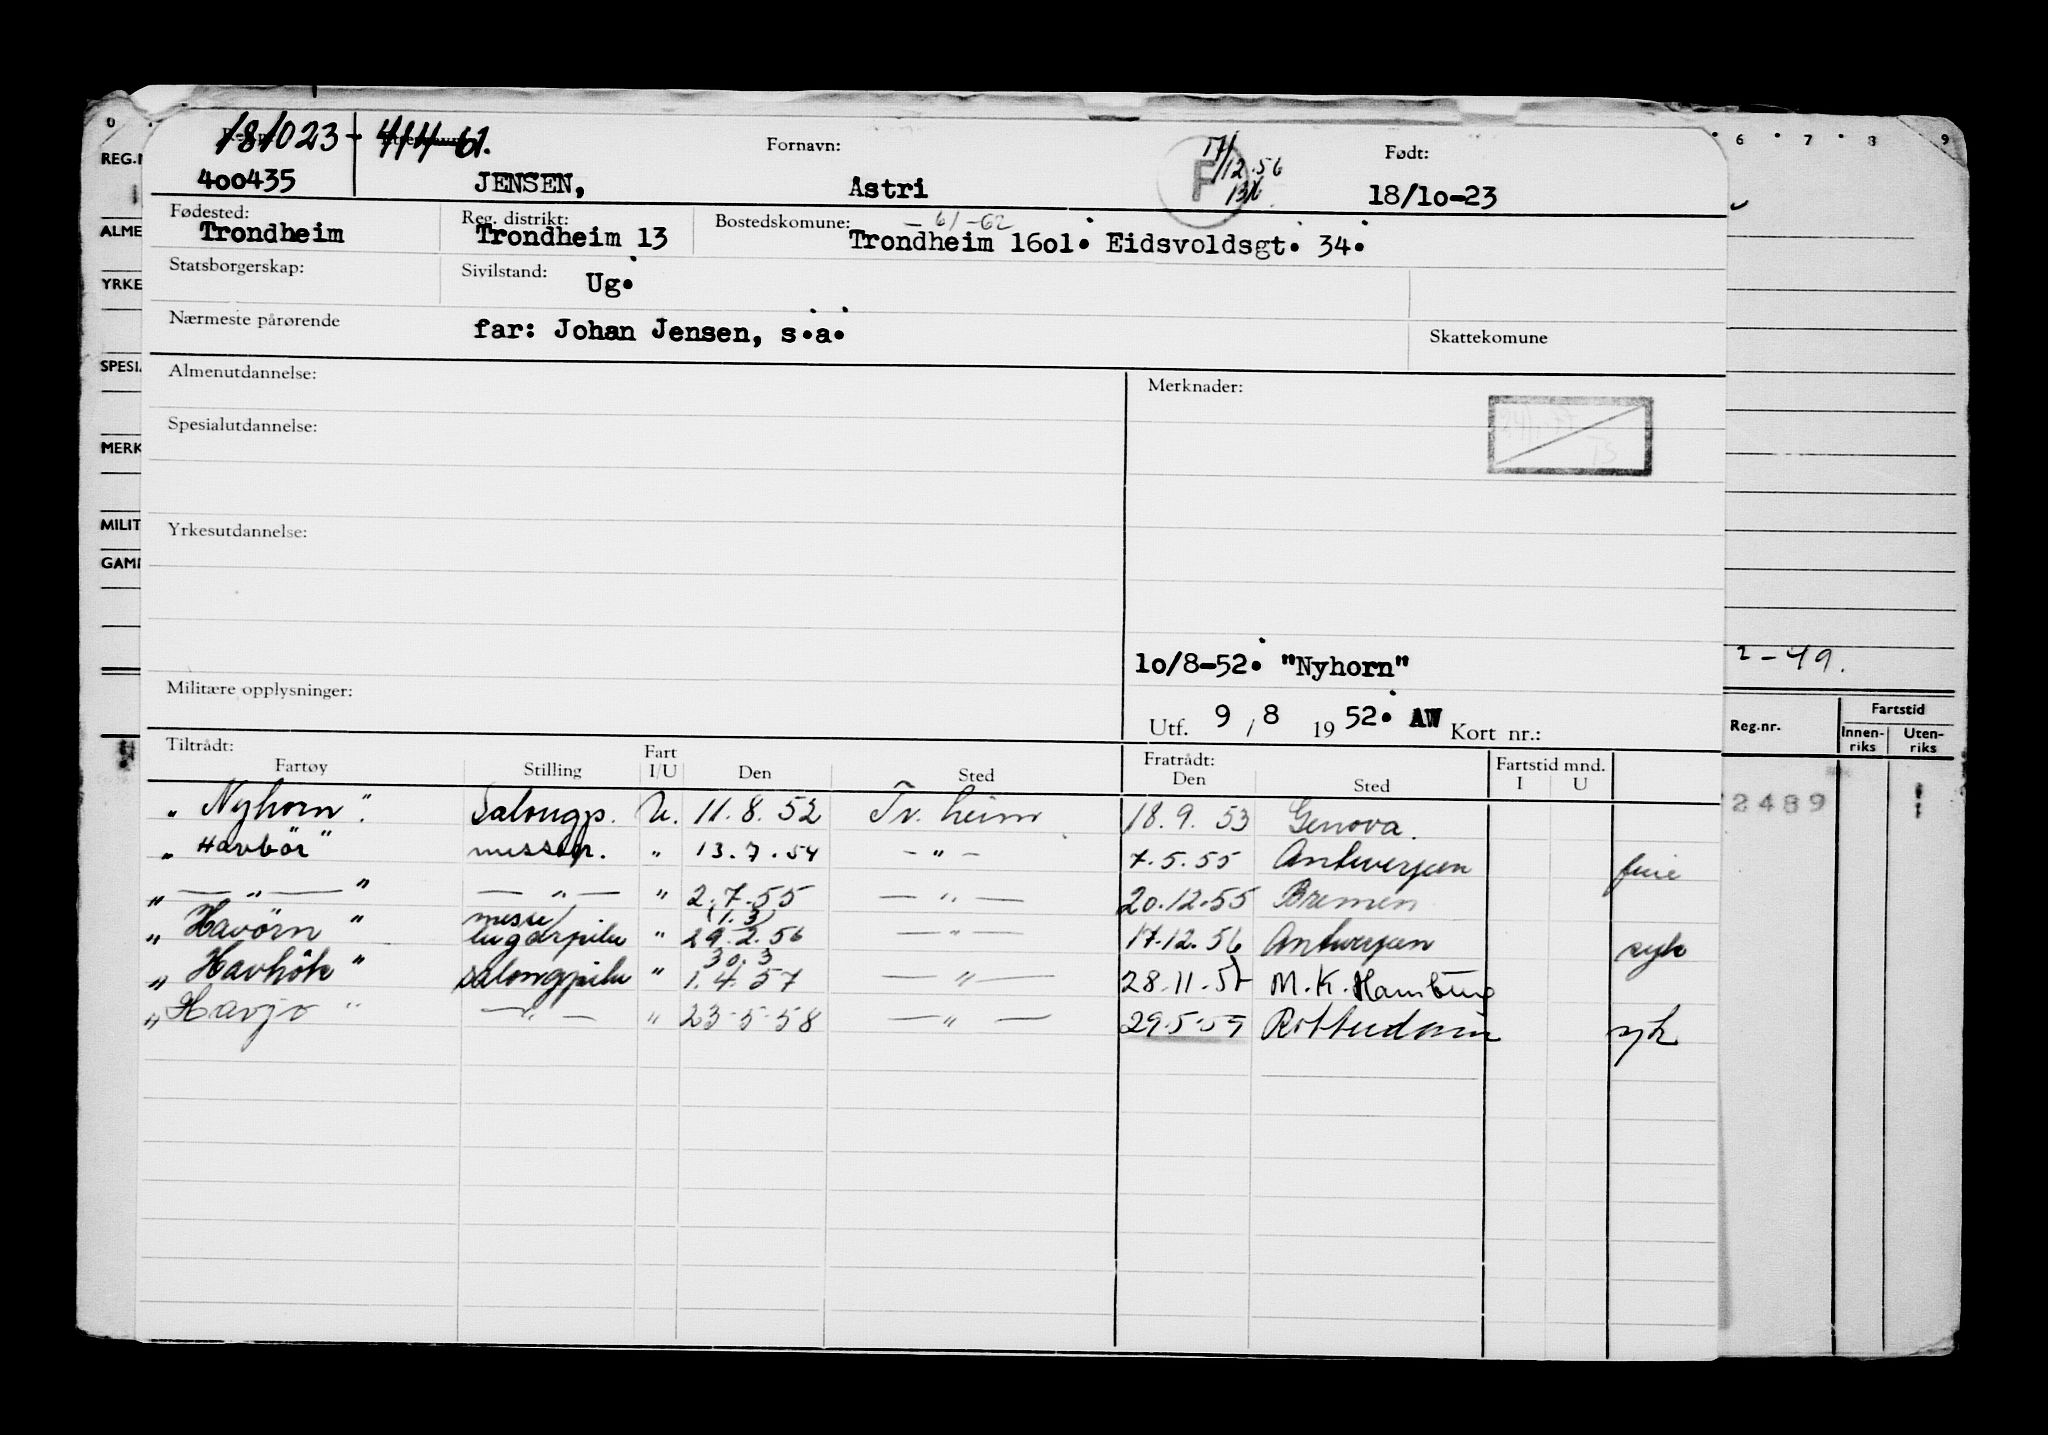 181023 - 411-61.
400435
JENSEN,
Fornavn:
Astri
F
17/12.56
Født:
18/10-23
Fødested:
Trondheim
Reg. distrikt:
Trondheim 13
Bostedskomune: -61-62
Trondheim 1601. Eidsvoldsgt. 34.
Statsborgerskap:
Sivilstand:
Ug.
Nærmeste pårørende
far: Johan Jensen, s.a.
Skattekomune
Almenutdannelse:
Merknader:
Spesialutdannelse:
Yrkesutdannelse:
10/8-52. "Nyhorn"
Militære opplysninger:
Utf. 9 / 8 19 52. AW Kort nr.:
Tiltrådt:
Fartøy Stilling Fart I/U Den Sted
Fratrådt:
Den Sted
Fartstid mnd.
I U
"Nyhorn" Salongp. U. 11.8.52 Tr.heim 18.9.53 Genova.
"Havbör" messep. " 13.7.54 - " - 7.5.55 Antwerpen ferie
" — " — " — " — " 2.7.55 — " — 20.12.55 Bremen
(1.3)
"Havörn" messe/lugarpike " 29.2.56 — " — 17.12.56 Antwerpen syk
30.3
"Havhök" salongpike " 1.4.57 — " — 28.11.57 M.K. Hamburg
"Havjo" — " — " 23-5-58 — " — 29.5.59 Rotterdam syk
0 6 7 8 9
REG.N
ALME
YRKE
SPESIA
MERK
MILIT
GAMI
2-49.
Reg.nr.
Fartstid
Innen-riks
Uten-riks
2489